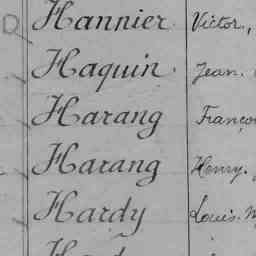 Hannier Victor,
Haquin Jean.
Harang
Harang Henry.
Hardy Louis.